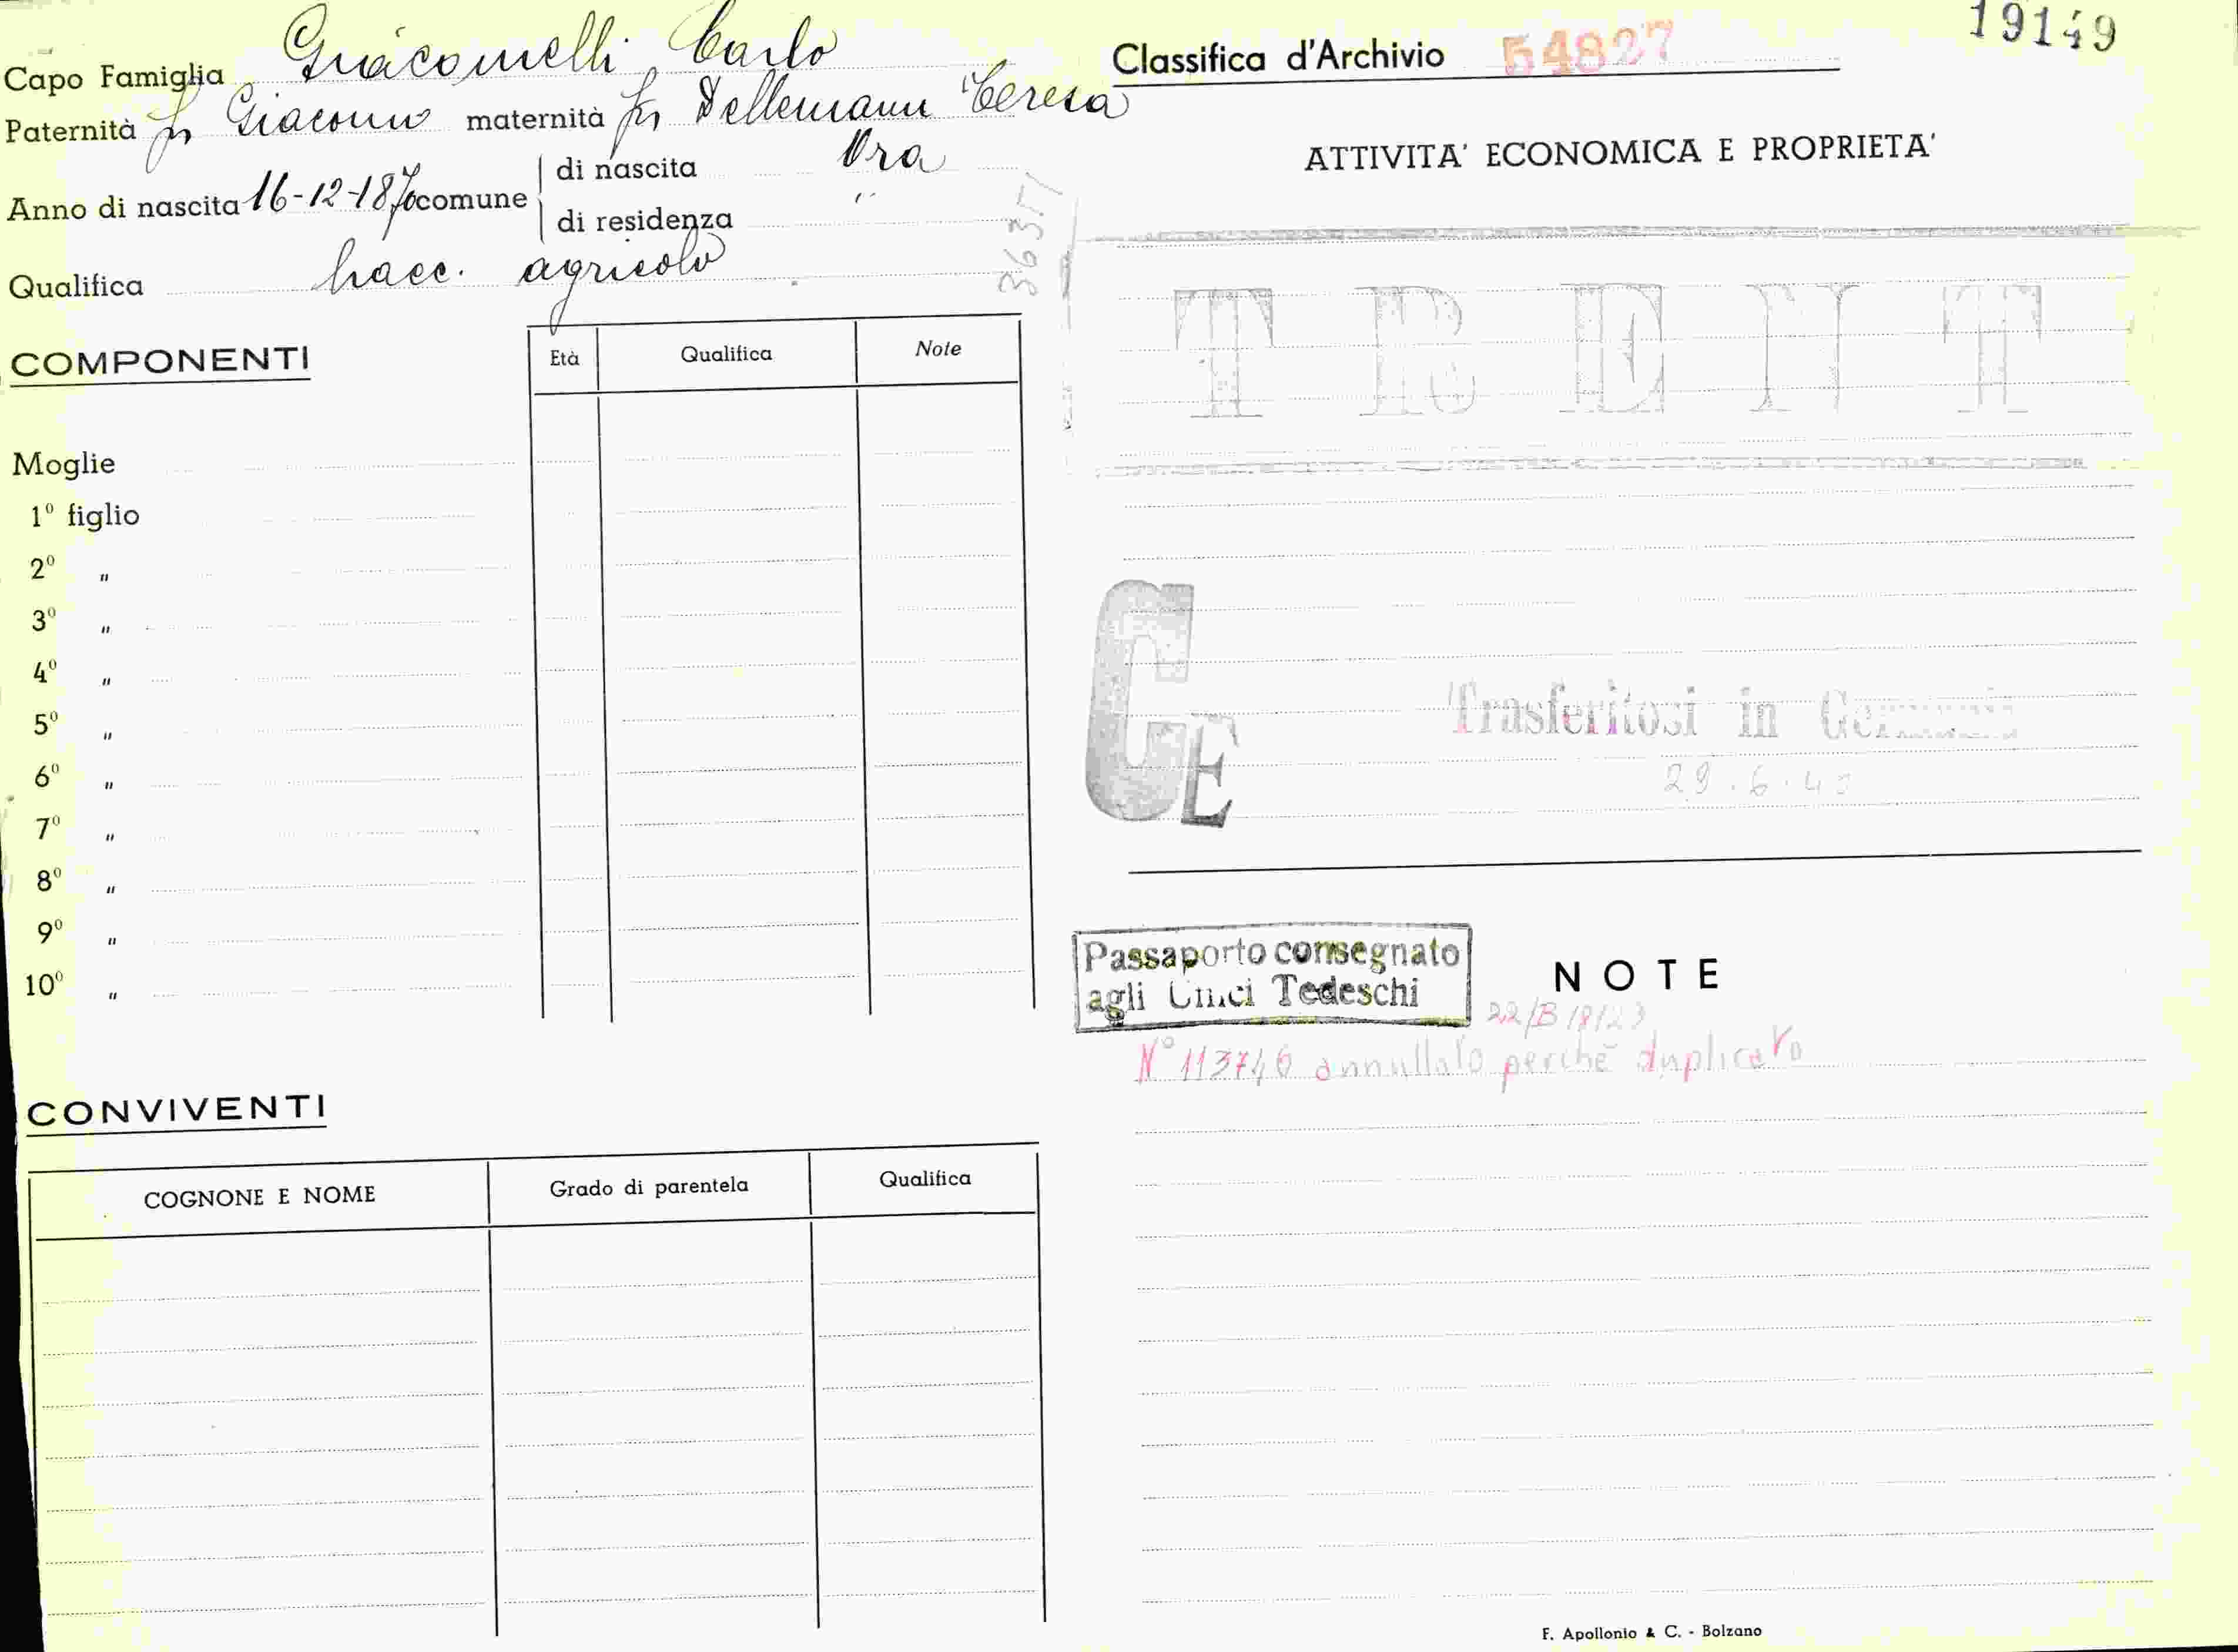 19149
Capo Famiglia Giacomelli Carlo
Paternità fu Giacomo maternità fu Dellemann Teresa
Anno di nascita 16-12-1870 comune di nascita Ora
di residenza "
Qualifica bracc. agricolo
COMPONENTI
Età Qualifica Note
Moglie
1º figlio
2º "
3º "
4º "
5º "
6º "
7º "
8º "
9º "
10º "
CONVIVENTI
COGNONE E NOME Grado di parentela Qualifica
Classifica d'Archivio 54827
ATTIVITA' ECONOMICA E PROPRIETA'
TRENT
CE
Trasferitosi in Germania
29.6.40
Passaporto consegnato
agli Uffici Tedeschi
NOTE
22/B/8/23
Nº 113746 annullato perchè duplicato
F. Apollonio & C. - Bolzano